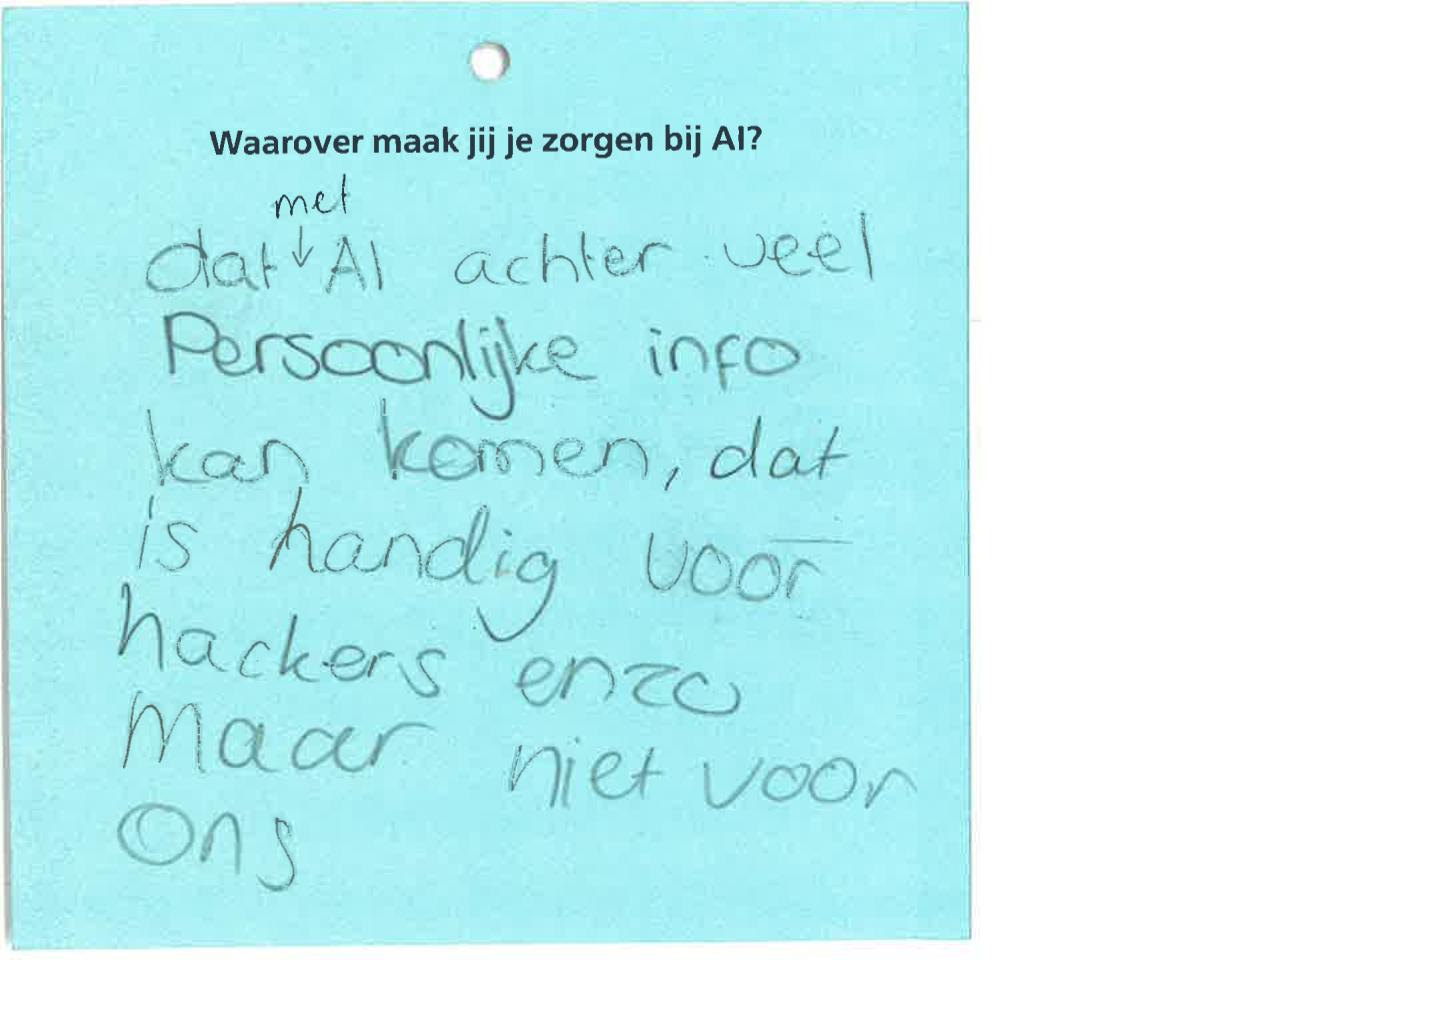 Waarover maak jij je zorgen bij AI?
met
dat ↓ AI achter veel
Persoonlijke info
kan komen, dat
is handig voor
hackers enzo
Maar niet voor
ons